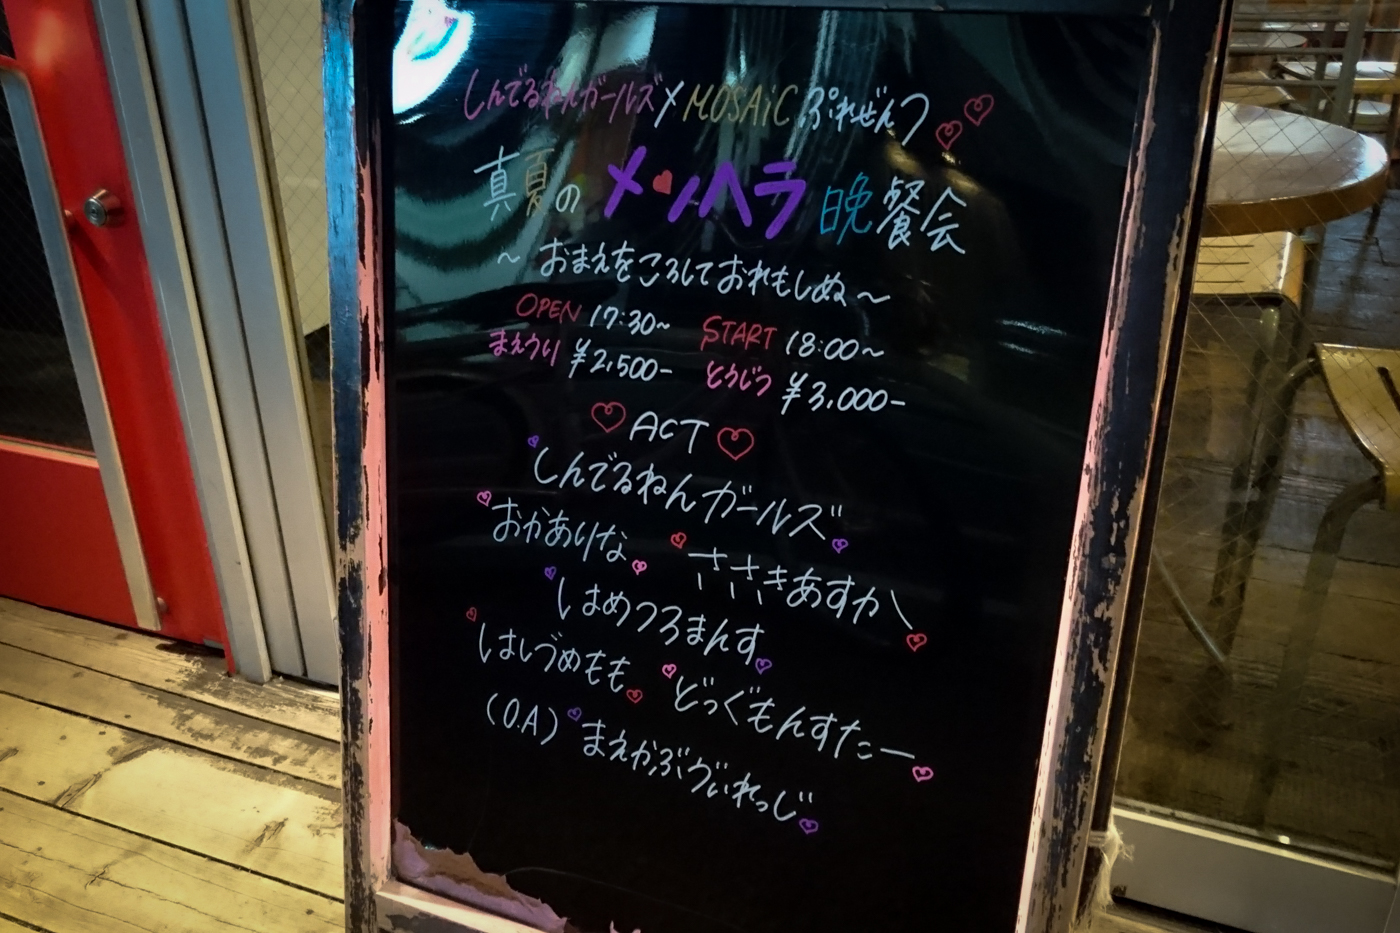 しんでるねんガールズ×MOSAiCぷれぜんつ
真夏のメンヘラ晩餐会
～おまえをころしておれもしぬ～
OPEN 17:30～ START 18:00～
まえうり ¥2,500- とうじつ ¥3,000-
ACT
しんでるねんガールズ
おかありな ささきあすか
はめつろまんす
はしづめもも どっぐもんすたー
(O.A) まえかぶゔぃれっじ